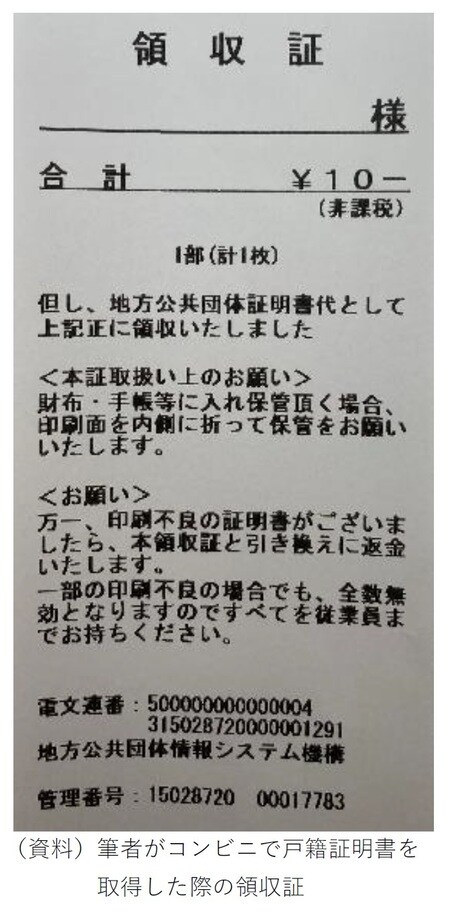 領 収 証
様
合 計 ¥10－
(非課税)
1部(計1枚)
但し、地方公共団体証明書代として
上記正に領収いたしました
＜本証取扱い上のお願い＞
財布・手帳等に入れ保管頂く場合、
印刷面を内側に折って保管をお願い
いたします。
＜お願い＞
万一、印刷不良の証明書がございま
したら、本領収証と引き換えに返金
いたします。
一部の印刷不良の場合でも、全数無
効となりますのですべてを従業員ま
でお持ちください。
電文連番：500000000000004
315028720000001291
地方公共団体情報システム機構
管理番号：15028720 00017783
（資料）筆者がコンビニで戸籍証明書を
取得した際の領収証